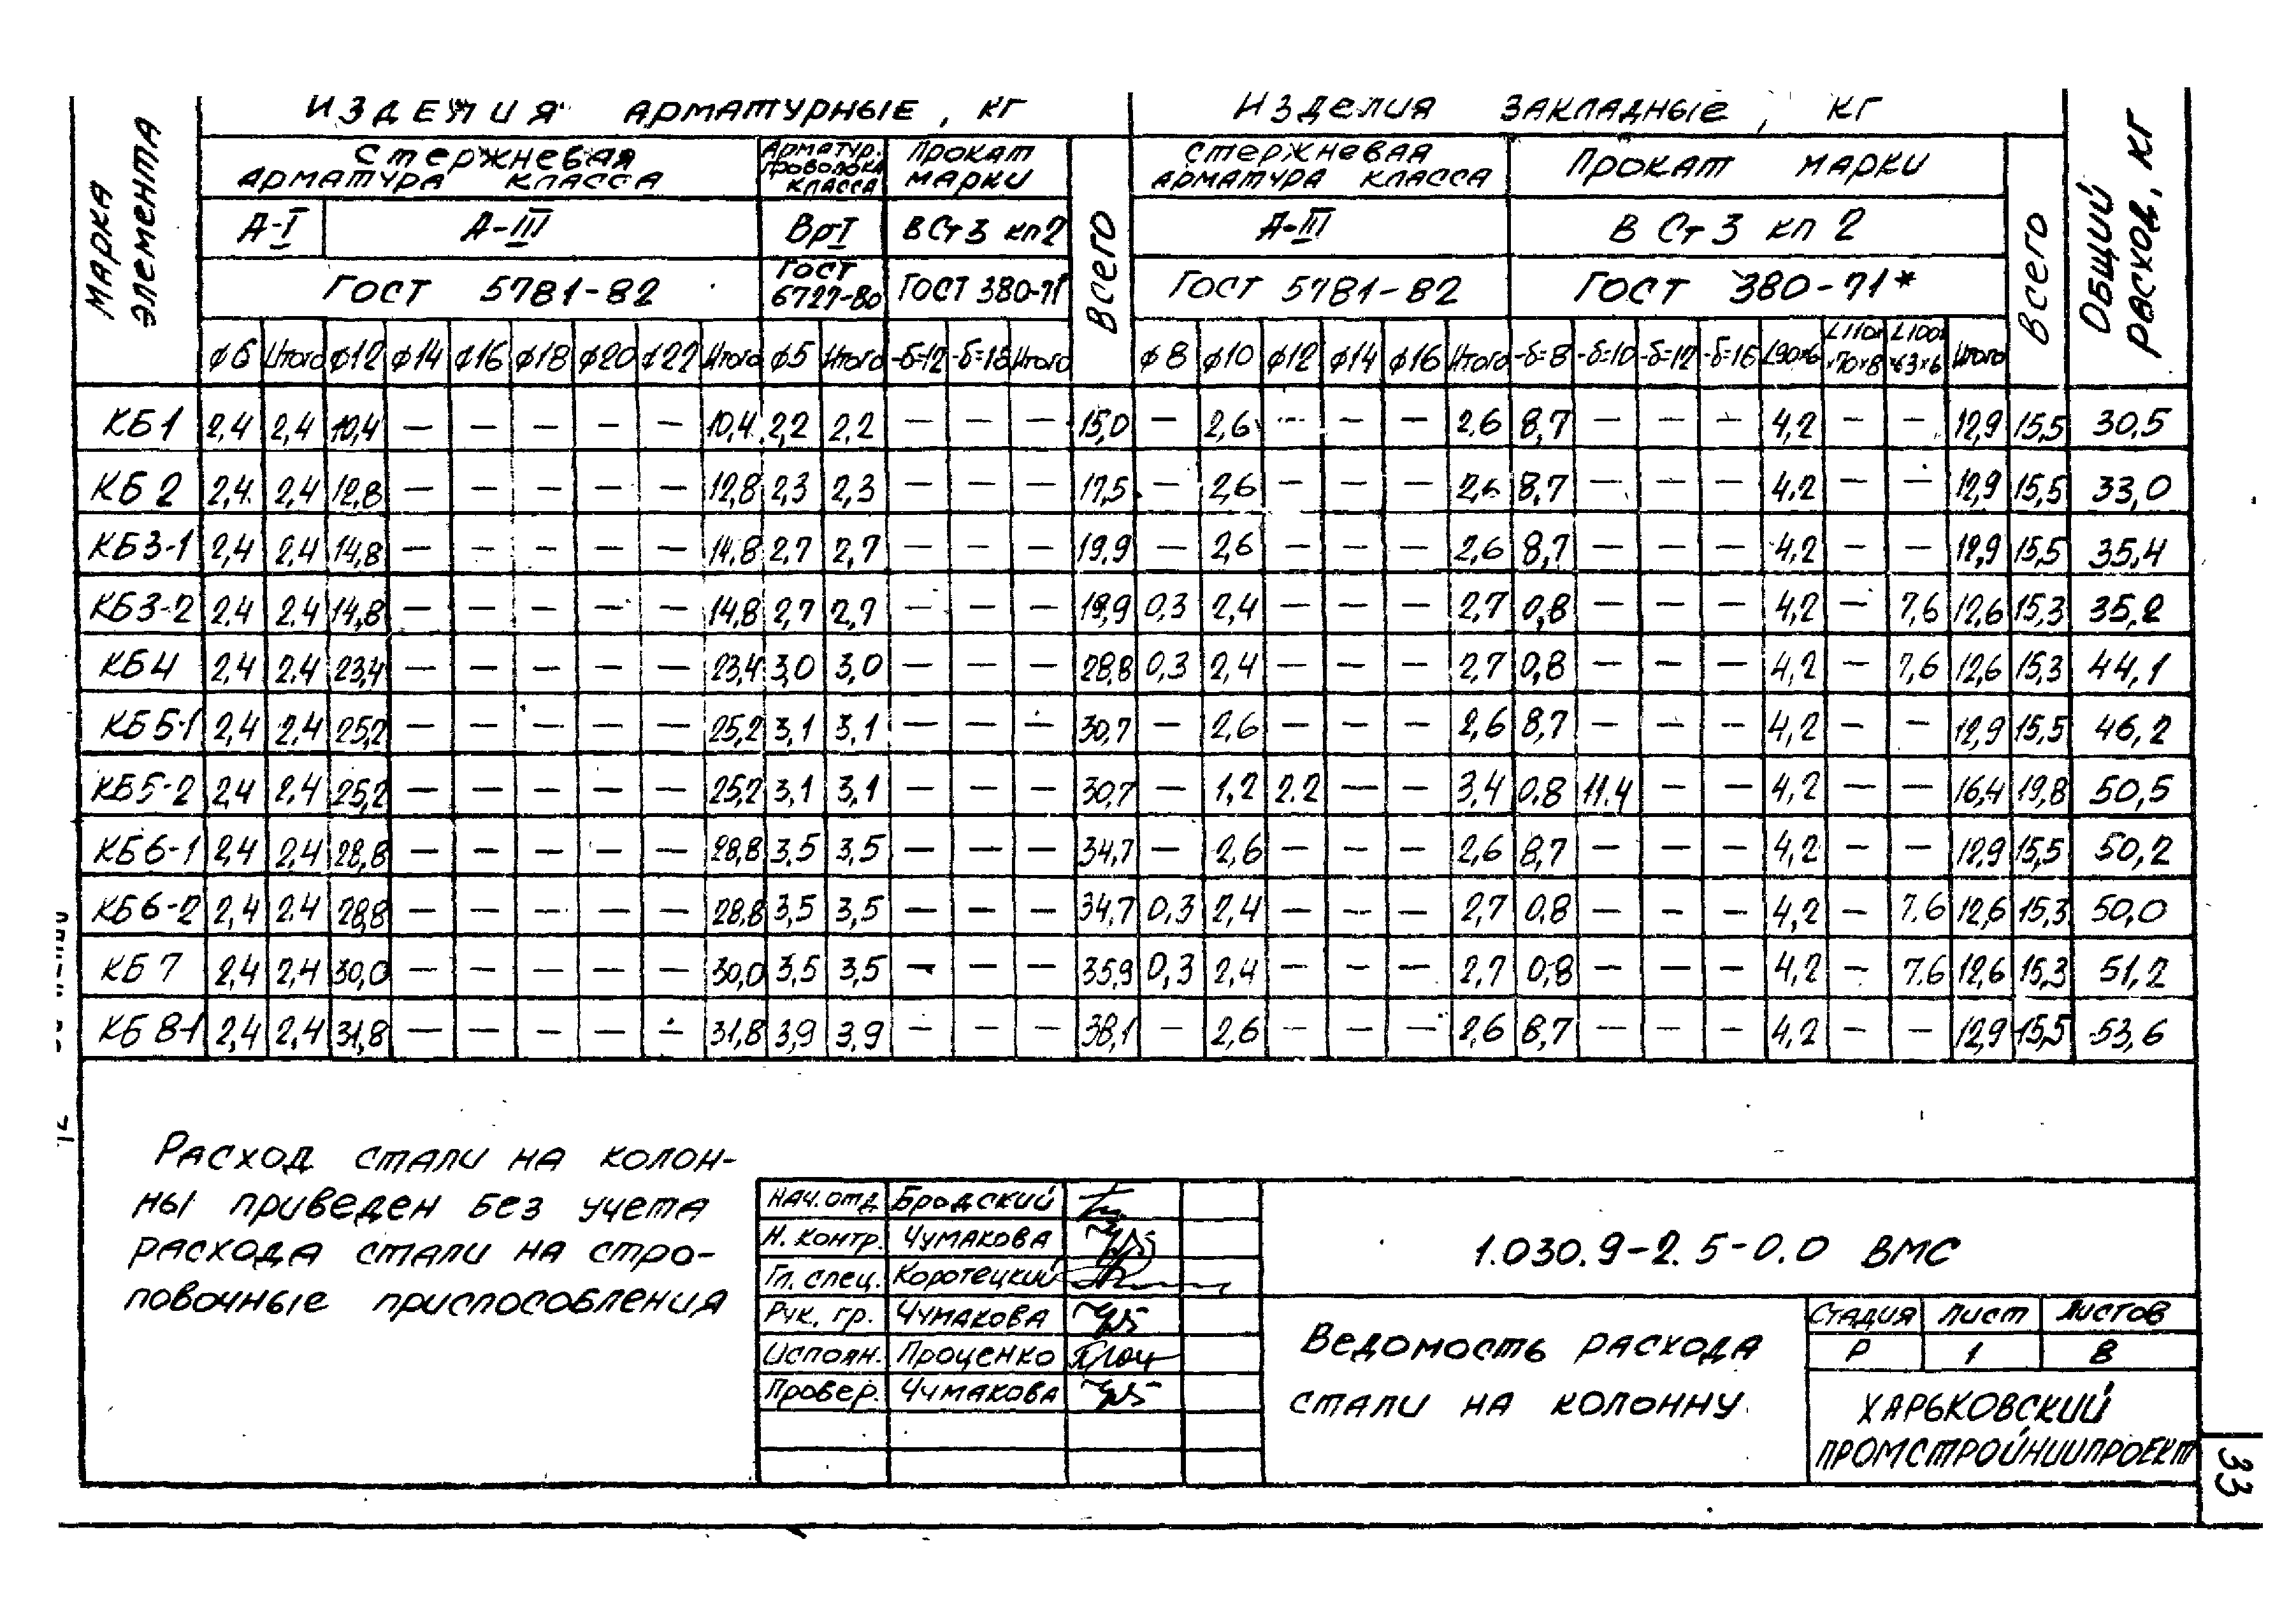 Марка элемента
Изделия арматурные, кг
Изделия закладные, кг
Общий расход, кг
Стержневая арматура класса
Арматур. проволока класса
Прокат марки
Всего
Стержневая арматура класса
Прокат марки
Всего
А-I А-III Вр-I ВСт3 кп2 А-III ВСт3 кп2
ГОСТ 5781-82 ГОСТ 6727-80 ГОСТ 380-71 ГОСТ 5781-82 ГОСТ 380-71*
ф6 Итого ф12 ф14 ф16 ф18 ф20 ф22 Итого ф5 Итого -δ=12 -δ=16 Итого ф8 ф10 ф12 ф14 ф16 Итого -δ=8 -δ=10 -δ=12 -δ=16 L90×6 L110××70×8 L100××63×6 Итого
КБ1 2,4 2,4 10,4 — — — — — 10,4 2,2 2,2 — — — 15,0 — 2,6 — — — 2,6 8,7 — — — 4,2 — — 12,9 15,5 30,5
КБ2 2,4 2,4 12,8 — — — — — 12,8 2,3 2,3 — — — 17,5 — 2,6 — — — 2,6 8,7 — — — 4,2 — — 12,9 15,5 33,0
КБ3-1 2,4 2,4 14,8 — — — — — 14,8 2,7 2,7 — — — 19,9 — 2,6 — — — 2,6 8,7 — — — 4,2 — — 12,9 15,5 35,4
КБ3-2 2,4 2,4 14,8 — — — — — 14,8 2,7 2,7 — — — 19,9 0,3 2,4 — — — 2,7 0,8 — — — 4,2 — 7,6 12,6 15,3 35,2
КБ4 2,4 2,4 23,4 — — — — — 23,4 3,0 3,0 — — — 28,8 0,3 2,4 — — — 2,7 0,8 — — — 4,2 — 7,6 12,6 15,3 44,1
КБ5-1 2,4 2,4 25,2 — — — — — 25,2 3,1 3,1 — — — 30,7 — 2,6 — — — 2,6 8,7 — — — 4,2 — — 12,9 15,5 46,2
КБ5-2 2,4 2,4 25,2 — — — — — 25,2 3,1 3,1 — — — 30,7 — 1,2 2.2 — — 3,4 0,8 11.4 — — 4,2 — — 16,4 19,8 50,5
КБ6-1 2,4 2,4 28,8 — — — — — 28,8 3,5 3,5 — — — 34,7 — 2,6 — — — 2,6 8,7 — — — 4,2 — — 12,9 15,5 50,2
КБ6-2 2,4 2.4 28,8 — — — — — 28,8 3,5 3,5 — — — 34,7 0,3 2,4 — — — 2,7 0,8 — — — 4,2 — 7.6 12,6 15,3 50,0
КБ7 2,4 2,4 30,0 — — — — — 30,0 3,5 3,5 — — — 35,9 0,3 2,4 — — — 2,7 0,8 — — — 4,2 — 7.6 12,6 15,3 51,2
КБ8-1 2,4 2,4 31,8 — — — — — 31,8 3,9 3,9 — — — 38,1 — 2,6 — — — 2,6 8,7 — — — 4,2 — — 12,9 15,5 53,6
Расход стали на колон-
ны приведен без учета
расхода стали на стро-
повочные приспособления
Нач. отд Бродский
Н. контр. Чумакова
Гл. спец. Коротецкий
Рук. гр. Чумакова
Исполн. Проценко
Провер. Чумакова
1.030.9-2.5-0.0 ВМС
Ведомость расхода
стали на колонну
Стадия Лист Листов
Р 1 8
ХАРЬКОВСКИЙ
ПРОМСТРОЙНИИПРОЕКТ
33